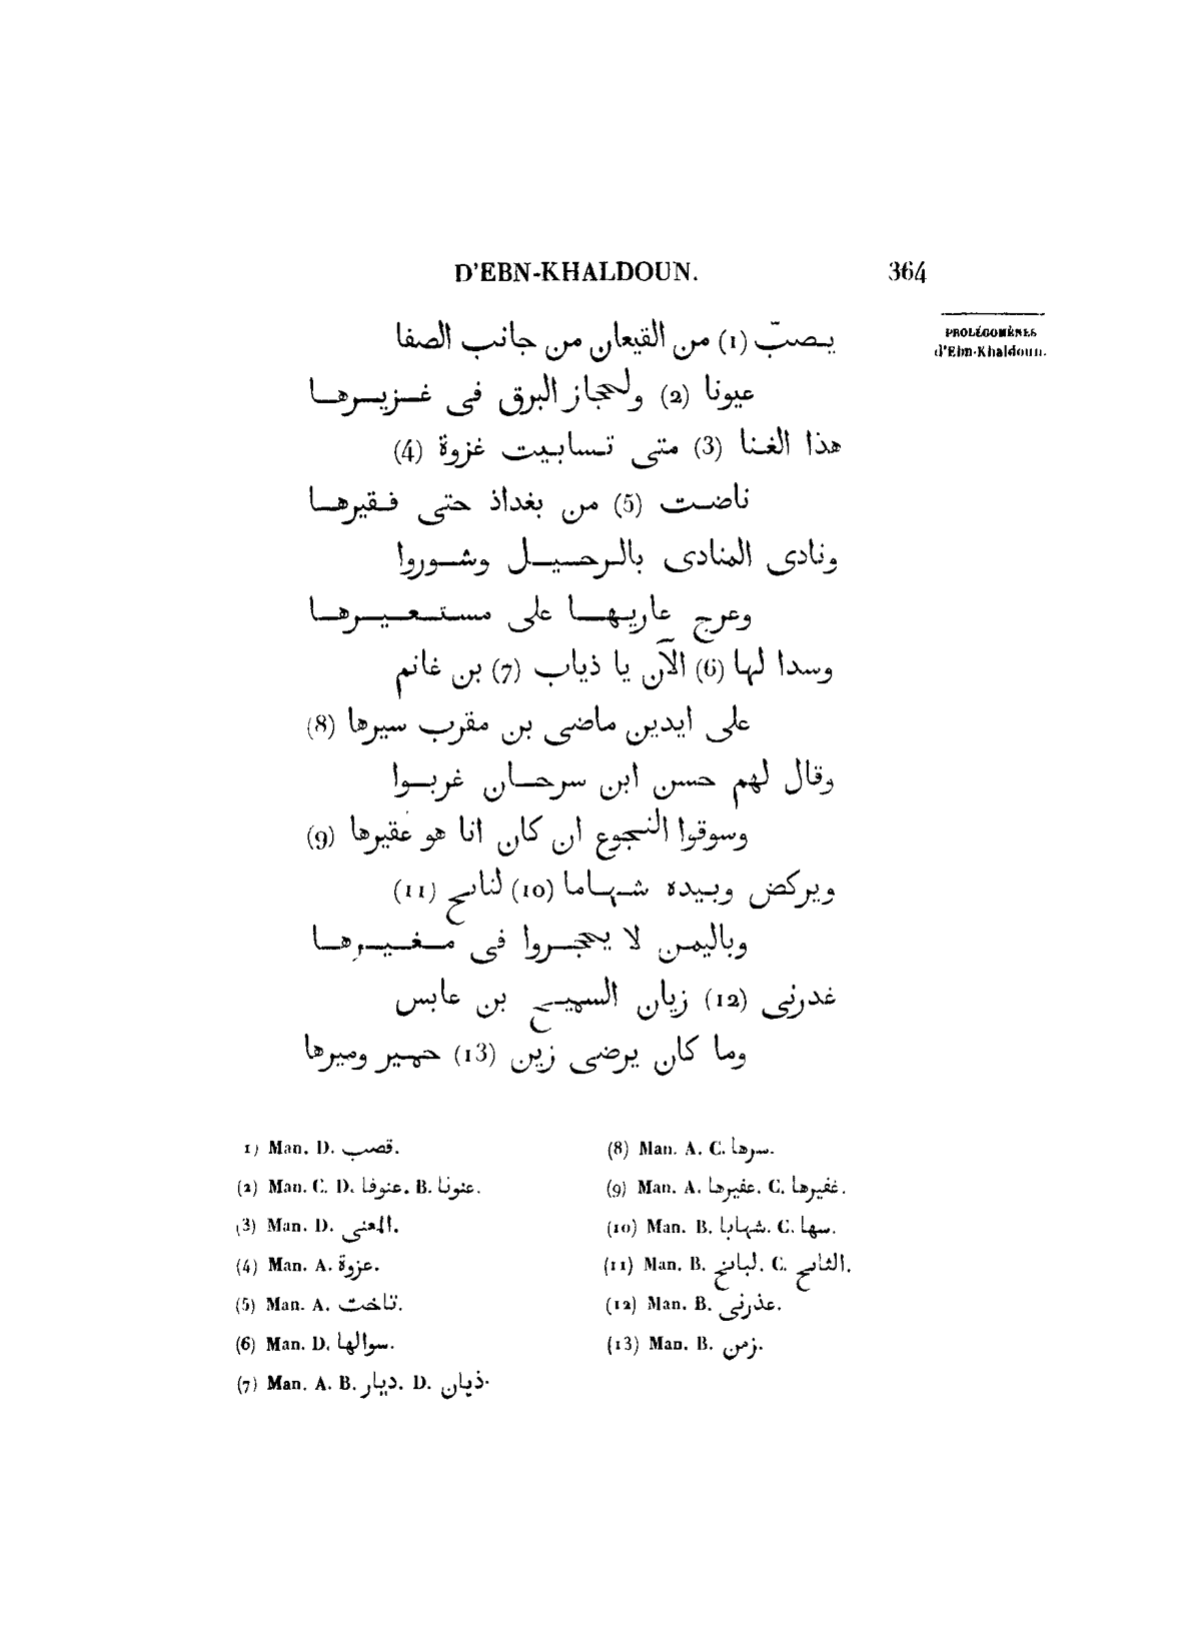 D'EBN-KHALDOUN. 364
PROLÉGOMÈNES
d'Ebn-Khaldoun.
يـصبّ (1) من القيعان من جانب الصفا
عيونا (2) ولحجاز البرق فى غـزيـرهـا
هذا الغـنا (3) متى تـسابـيت غزوة (4)
ناضـت (5) من بغداذ حتى فـقيرهـا
ونادى المنادى بالـرحـيـل وشـوروا
وعرج عاريـهـا على مسـتـعـيـرهـا
وسدا لها (6) الآن يا ذياب (7) بن غانم
على ايدين ماضى بن مقرب سيرها (8)
وقال لهم حسن ابن سرحـان غربـوا
وسوقوا النجوع ان كان انا هو عقيرها (9)
ويركض وبـيده شـهـاما (10) لناىح (11)
وباليمـن لا يحجـروا فى مـغـيـرهـا
غدرنى (12) زيان السميـح بن عابس
وما كان يرضى زين (13) حمير وميرها
1) Man. D. قصب.
(2) Man. C. D. عنوفا. B. عنونا.
(3) Man. D. المعنى.
(4) Man. A. عزوة.
(5) Man. A. تاخت.
(6) Man. D. سوالها.
(7) Man. A. B. ديار. D. ذيان.
(8) Man. A. C. سرها.
(9) Man. A. عفيرها. C. غفيرها.
(10) Man. B. شهابا. C. سها.
(11) Man. B. لبانح. C. الثاىح.
(12) Man. B. عذرنى.
(13) Man. B. زمن.